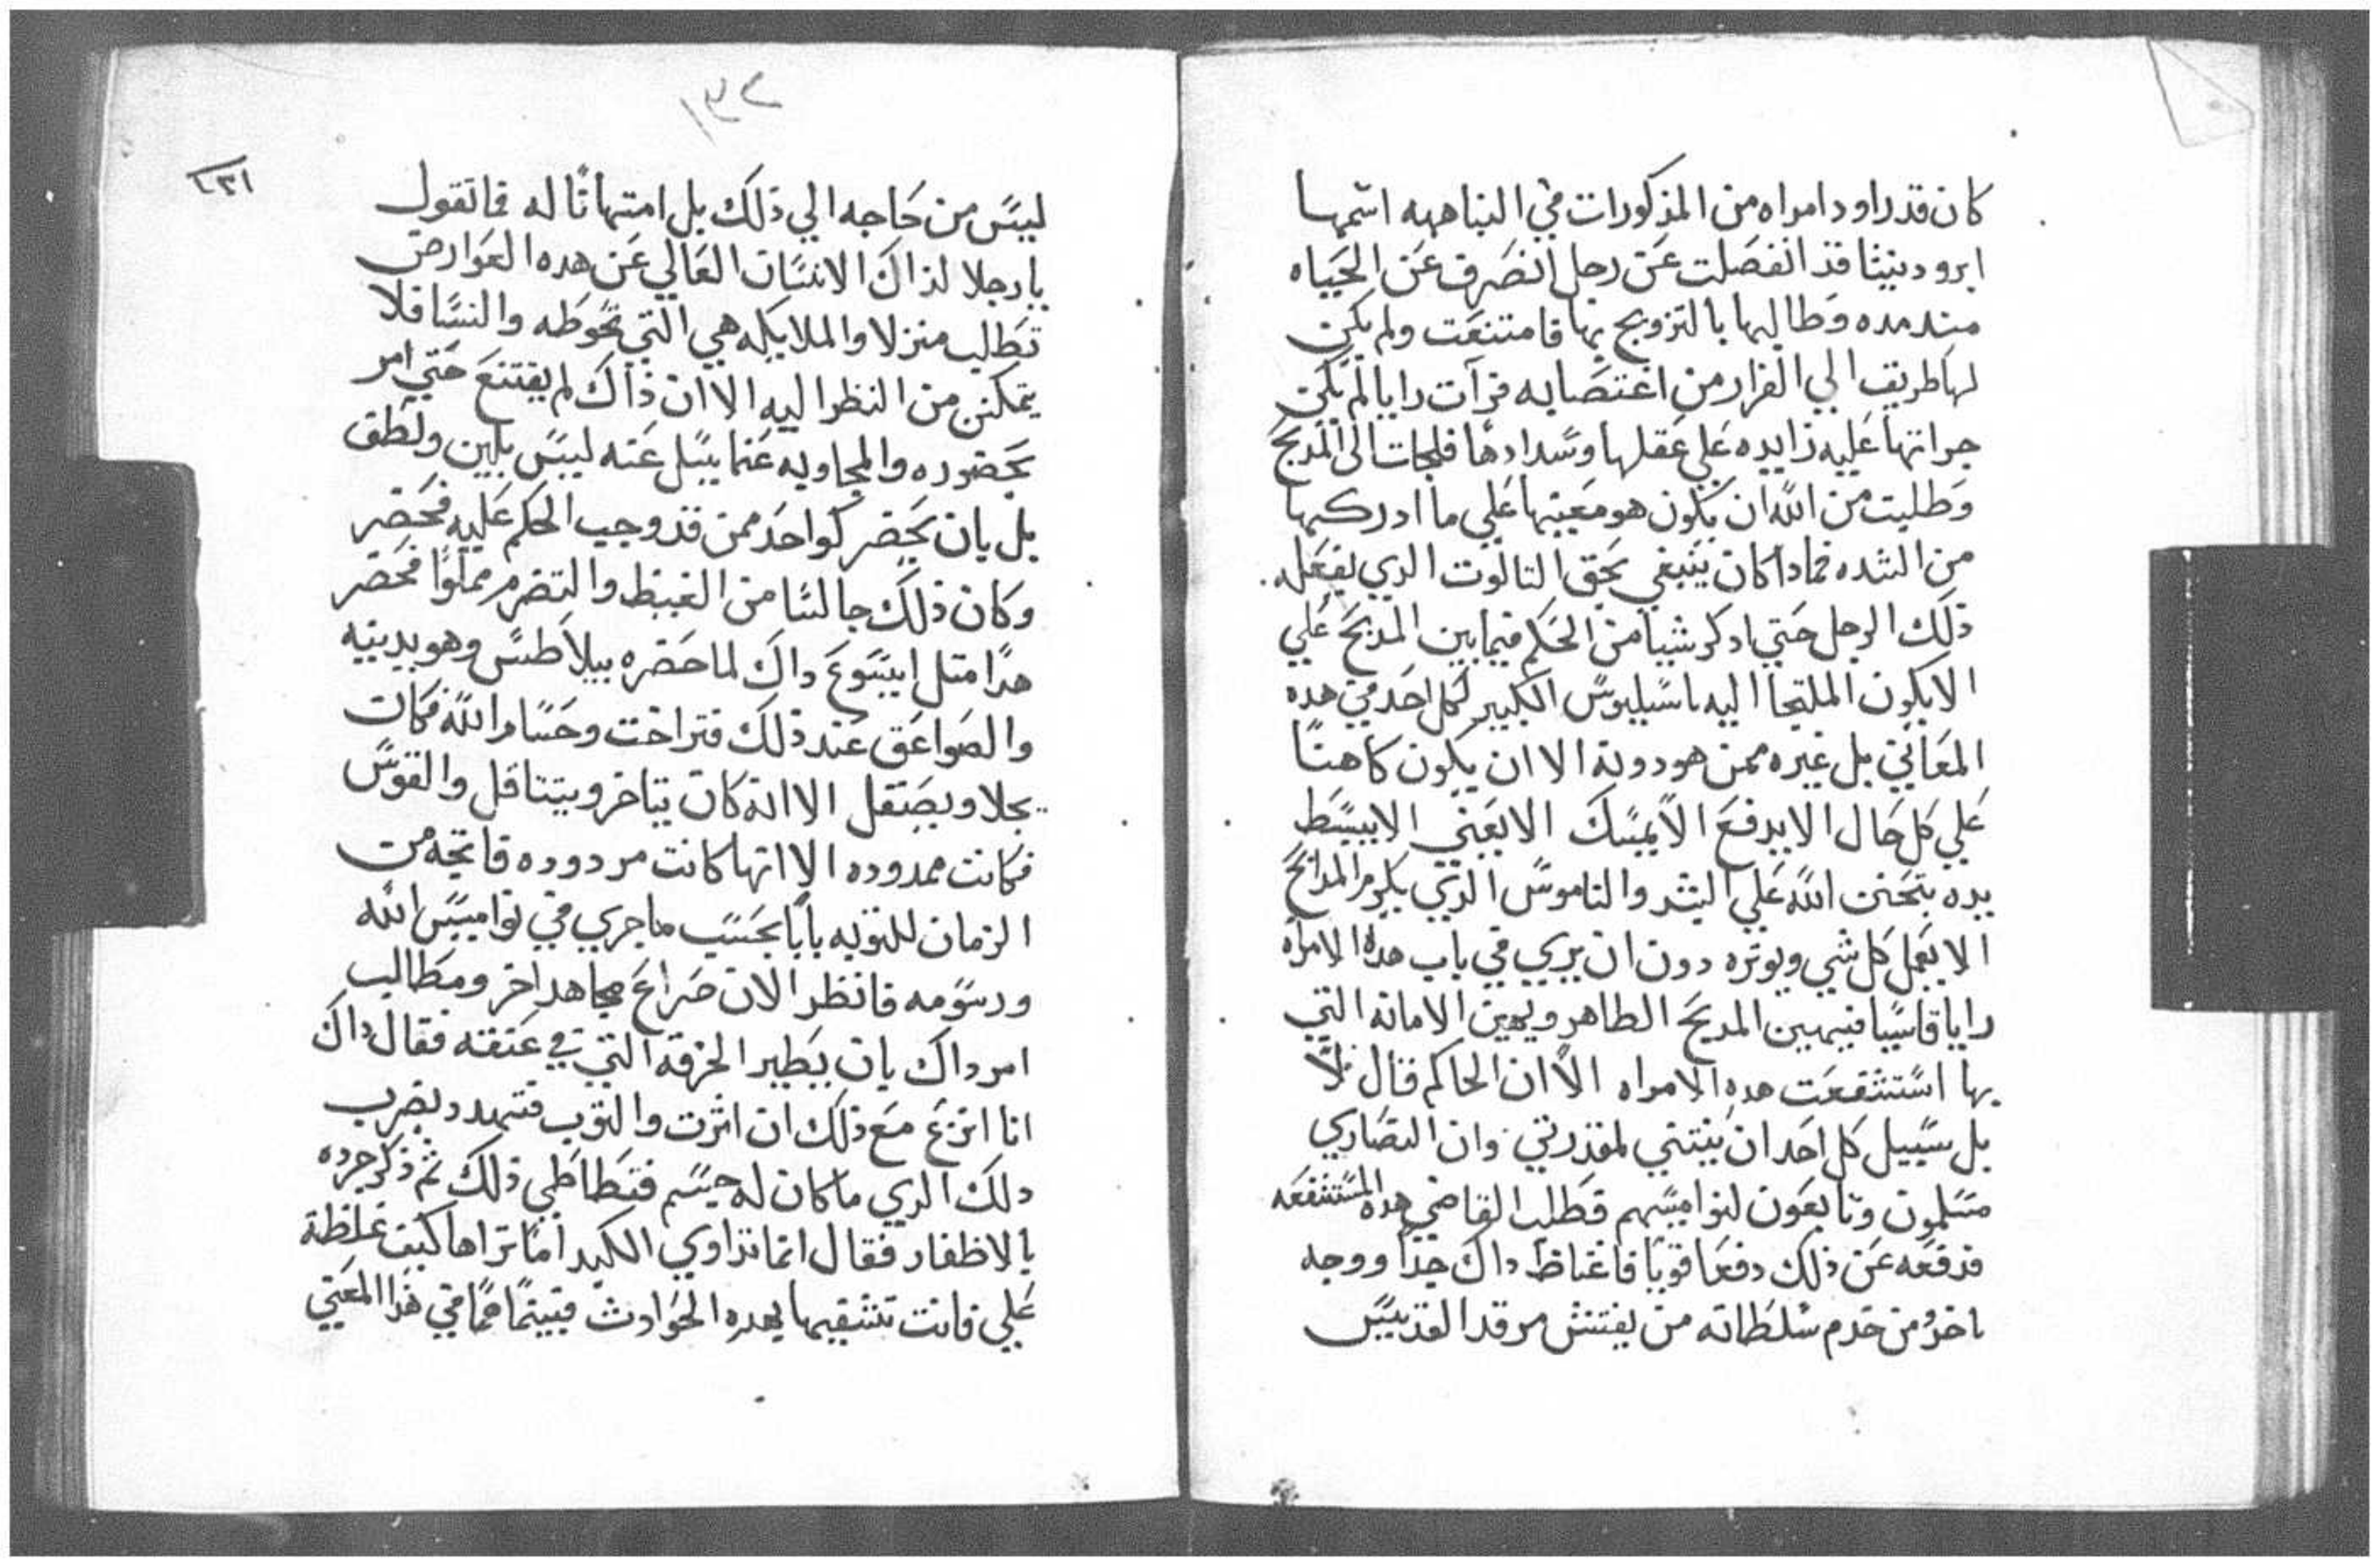 كان قد راود امراه من المذكورات في النباهه اسمها
ابرودينيثا قد انفصلت عن رجل انصرف عن الحياه
مند مده وطالبها بالتزويج بها فامتنعت ولم يكن
لها طريق الي الفرار من اغتصابه فرآت رايا لم يكن
جراتها عليه زايده علي عقلها وسدادها فلجات الى المدبح
وطلبت من الله ان يكون هو معينها علي ما ادركها
من الشده فمادا كان ينبغي بحق التالوت الدي يفعله
ذلك الرجل حتي ادكر شيا من الحكم فيما بين المدبح علي
الا يكون الملتجا اليه باسيليوس الكبير لكل احد في هده
المعاني بل غيره ممن هو دونه الا ان يكون كاهنا
علي كل حال الا يدفع الا يمسك الا يعني الا يبسط
يده بتحنن الله علي البشر والناموس الدي يكرم المدابح
الا يعمل كل شي ويوتره دون ان يري في باب هده الامراه
رايا قاسيا فيهين المدبح الطاهر ويهين الامانه التي
بها استشفعت هده الامراه الا ان الحاكم قال كلا
بل سبيل كل احد ان ينتني لمقدرتي وان النصاري
مسلمون وتابعون لنواميسهم فطلب القاضي هده المستشفعه
فدفعه عن ذلك دفعا قويا فاغتاظ داك جدا ووجه
باخره من خدم سلطانه من يفتش مرقد القديس
١٣٢
١٣٢
ليس من حاجه الي ذلك بل امتهانا له فما تقول
يا رجلا لذاك الانسان العالي عن هده العوارض
تطالب منزلا والملايكه هي التي تحوطه والنسا فلا
يتمكنن من النظر اليه الا ان ذاك لم يقتنع حتي امر
بحضوره والمجاوبه عما يسل عنه ليس بلين ولطف
بل بان يحضر كواحد ممن قد وجب الحكم عليه فحضر
وكان ذلك جالسا من الغيظ والتضرم مملوا فحضر
هدا متل ايسوع داك لما حضره بيلاطس وهو يدينه
والصواعق عند ذلك فتراخت وحسام الله فكان
يجلا ويصقل الا انه كان يتاخر ويتتاقل والقوس
فكانت ممدوده الا انها كانت مردوده فاتحه من
الزمان للتوبه بابا بحسب ما جري في نواميس الله
ورسومه فانظر الان صراع مجاهد اخر ومطالب
امر داك بان يطير الخرقه التي في عنقه فقال داك
انا انزع مع ذلك ان اثرت والتوب فتهدد بضرب
دلك الدي ما كان له جسم فتطاطي ذلك ثم ذكر جرده
بالاظفار فقال انما تداوي الكبد اما تراها كيف غلظة
علي فانت تشفيها بهده الحوادث فبينما هما في هدا المعني